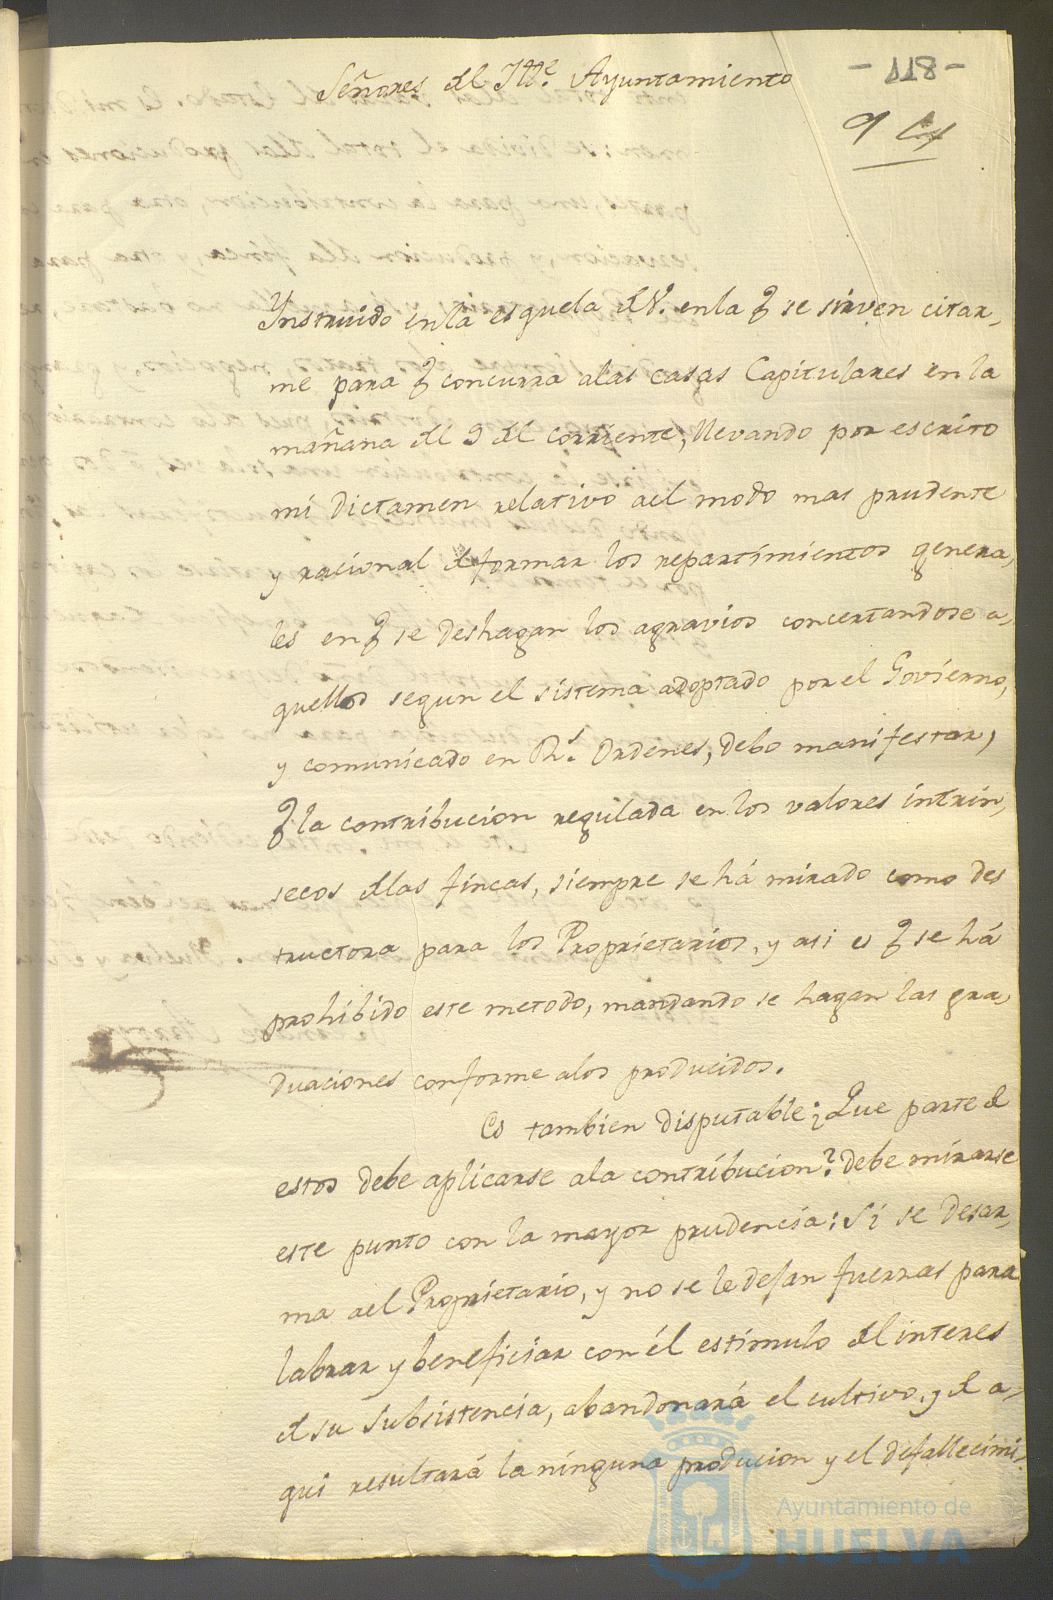 -118-
Señores del Ytte. Ayuntamiento
Ynstruido en la esquela d V. en la q se sirven citar-
me para q concurra alas casas Capitulares en la
mañana del 9 del corriente, llevando por escrito
mi Dictamen relativo ael modo mas prudente
y racional de formar los repartimientos genera,
les en q se deshagan los agravios concertandose a,
quellos segun el sistema adoptado por el Govierno,
y comunicado en Rs. Ordenes, debo manifestar,
q la contribucion regulada en los valores intrin,
secos delas fincas, siempre se há mirado como des
tructora para los Proprietarios, y asi es q se há
prohibido este metodo, mandando se hagan las gra,
duaciones conforme alos producidos.
Es tambien disputable: ¿Que parte de
estos debe aplicarse ala contribucion? debe mirarse
este punto con la mayor prudencia: Si se desar,
ma ael Proprietario, y no se le dejan fuerzas para
labrar y beneficiar con él estimulo del interes
de su subsistencia, abandonará el cultivo, y de a,
qui resultará la ninguna producion y el defallecimi,
Ayuntamiento de
HUELVA